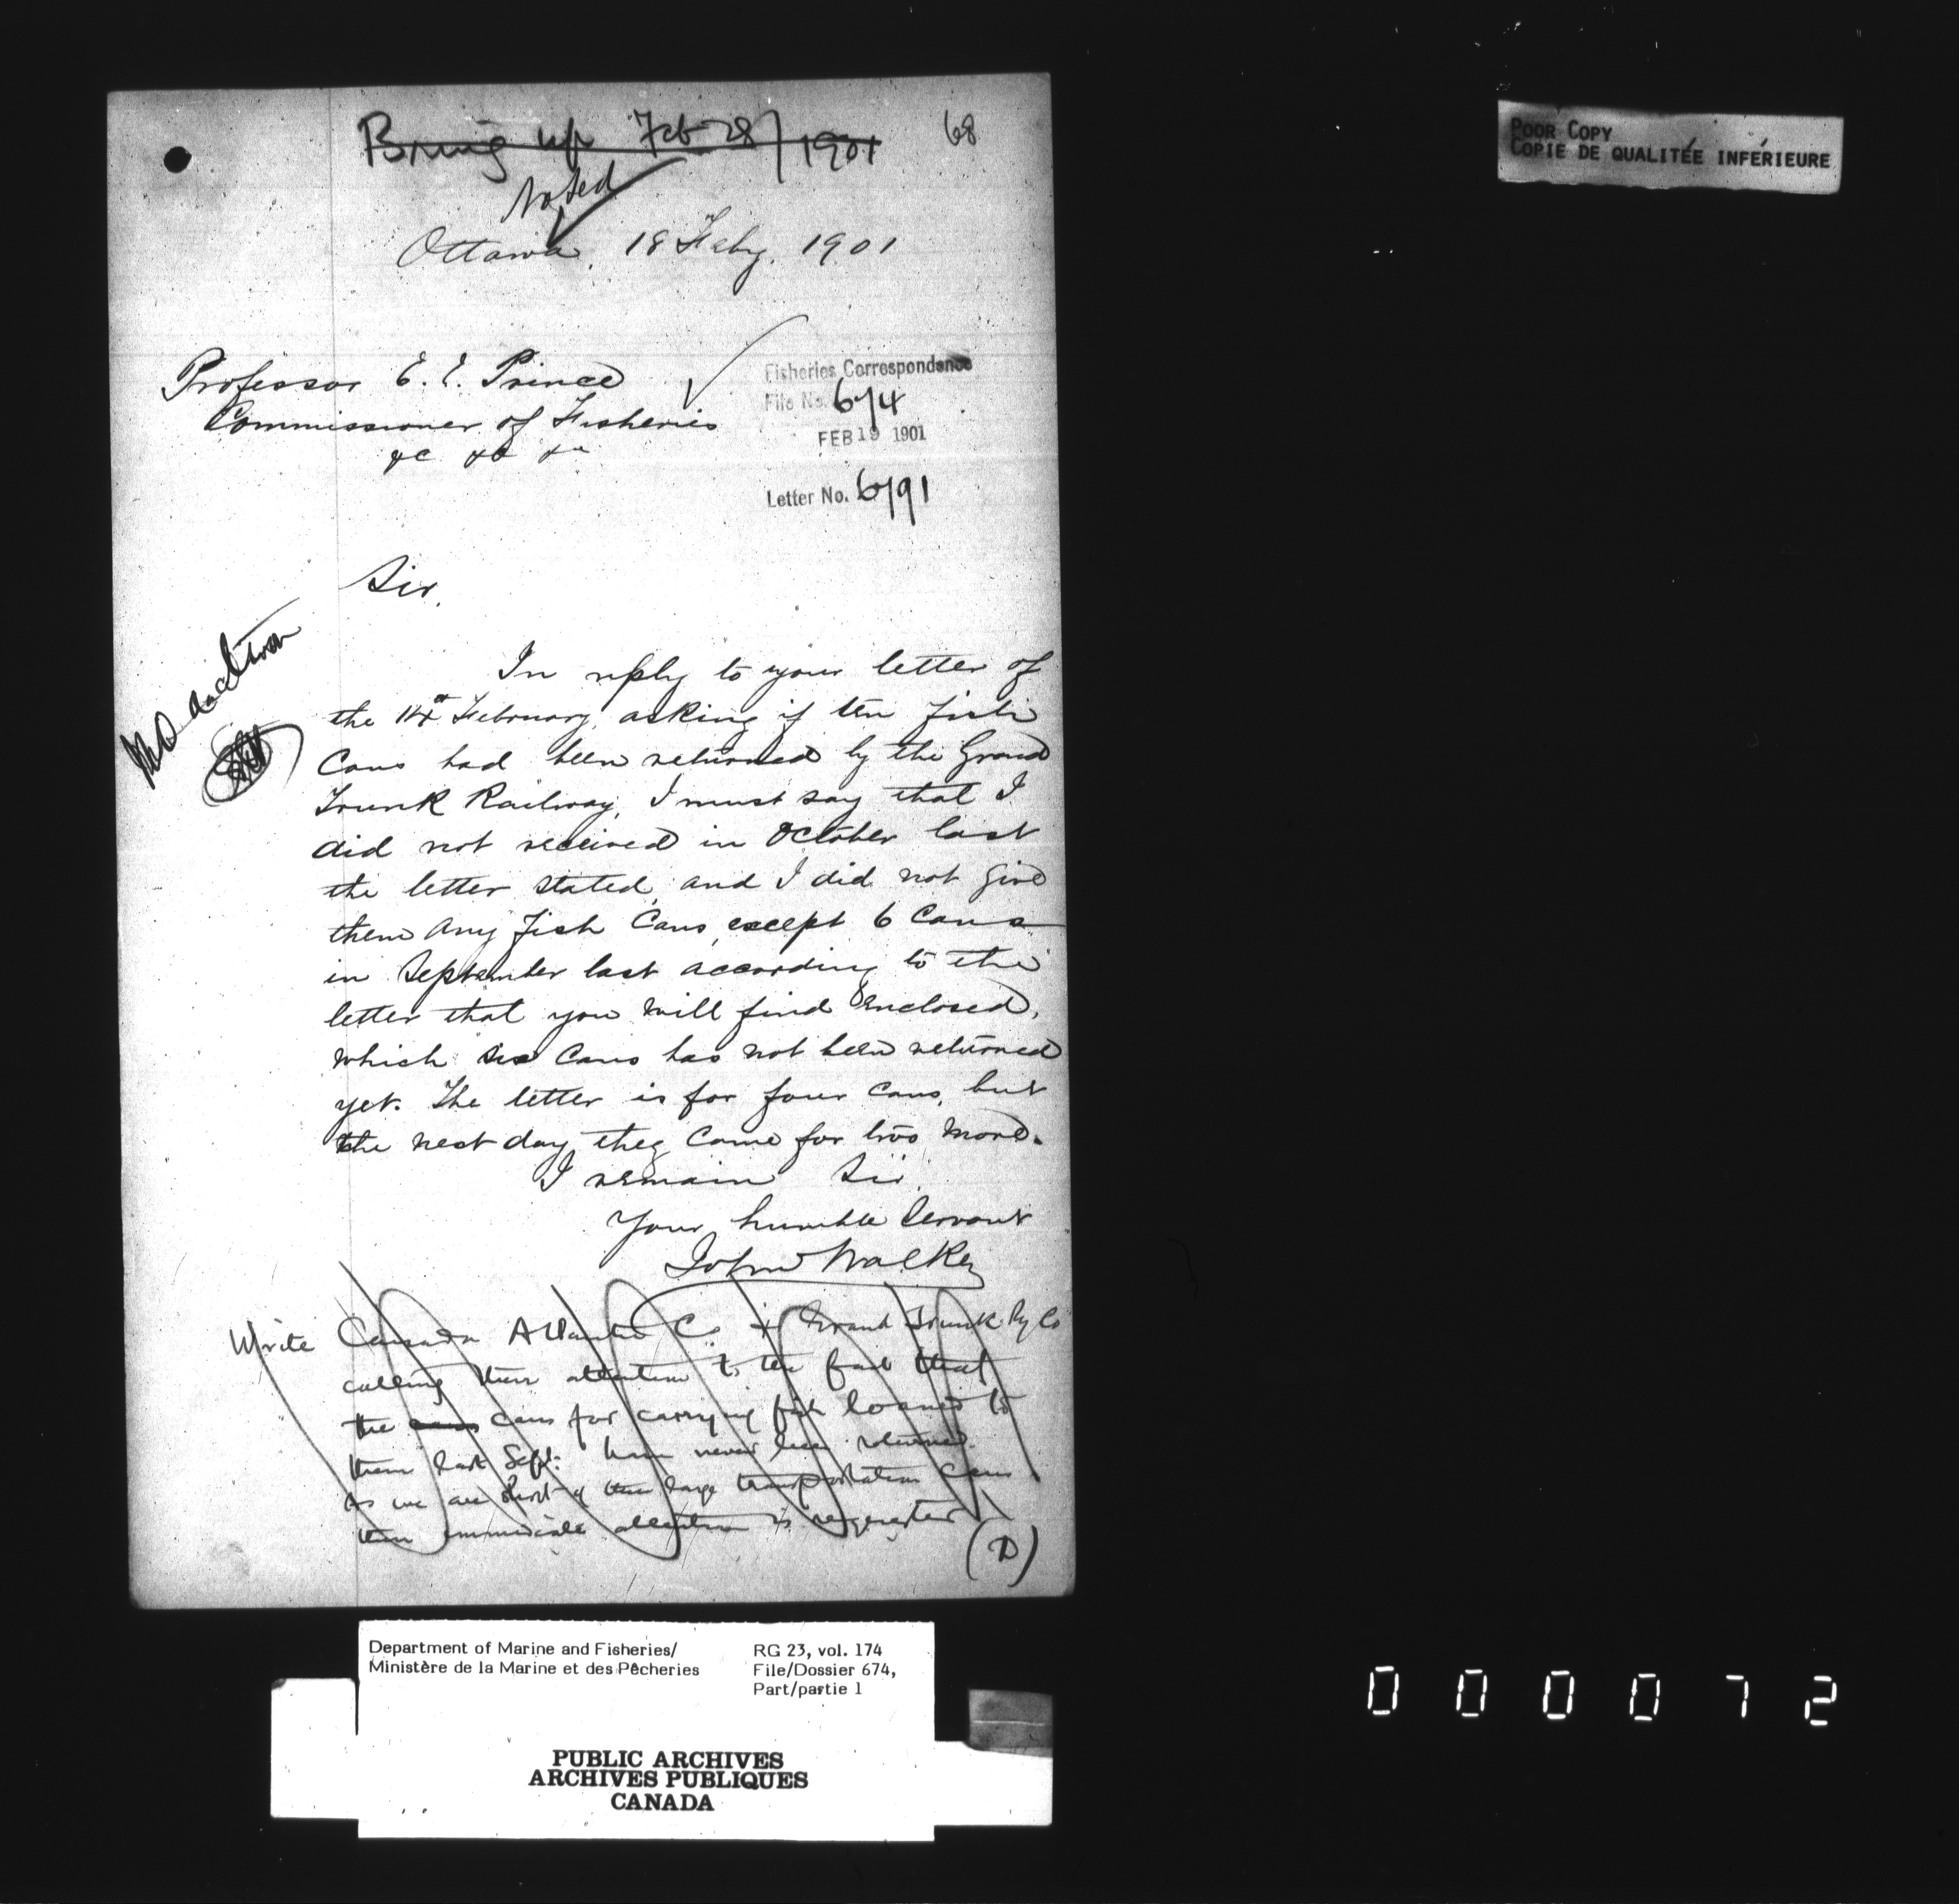 Bring up Feb 28/1901
68
Noted
POOR COPY
COPIE DE QUALITÉE INFÉRIEURE
Ottawa, 18 Feby, 1901
Professor E. E. Prince
Commissioner of Fisheries
&c &c &c
Fisheries Correspondence
File No. 674
FEB 19 1901
Letter No. 6791
Sir,
In reply to your letter of
the 14th February, asking if ten fish
Cans had been returned by the Grand
Trunk Railway, I must say that I
did not received in October last
the letter stated, and I did not give
them any Fish Cans, except 6 Cans
in September last according to the
letter that you will find Enclosed,
which six Cans has not been returned
yet. The letter is for four Cans, but
the next day they Came for two More.
I remain Sir,
Your humble Servant
John Walker
No action
Write Canada Atlantic Co. + Grand Trunk Ry Co
calling their attention to the fact that
the cans cans for carrying fish loaned to
them last Sept: have never been returned.
As we are short of these large transportation cans
their immediate attention is requested
(D)
Department of Marine and Fisheries/
Ministère de la Marine et des Pêcheries
RG 23, vol. 174
File/Dossier 674,
Part/partie 1
PUBLIC ARCHIVES
ARCHIVES PUBLIQUES
CANADA
000072